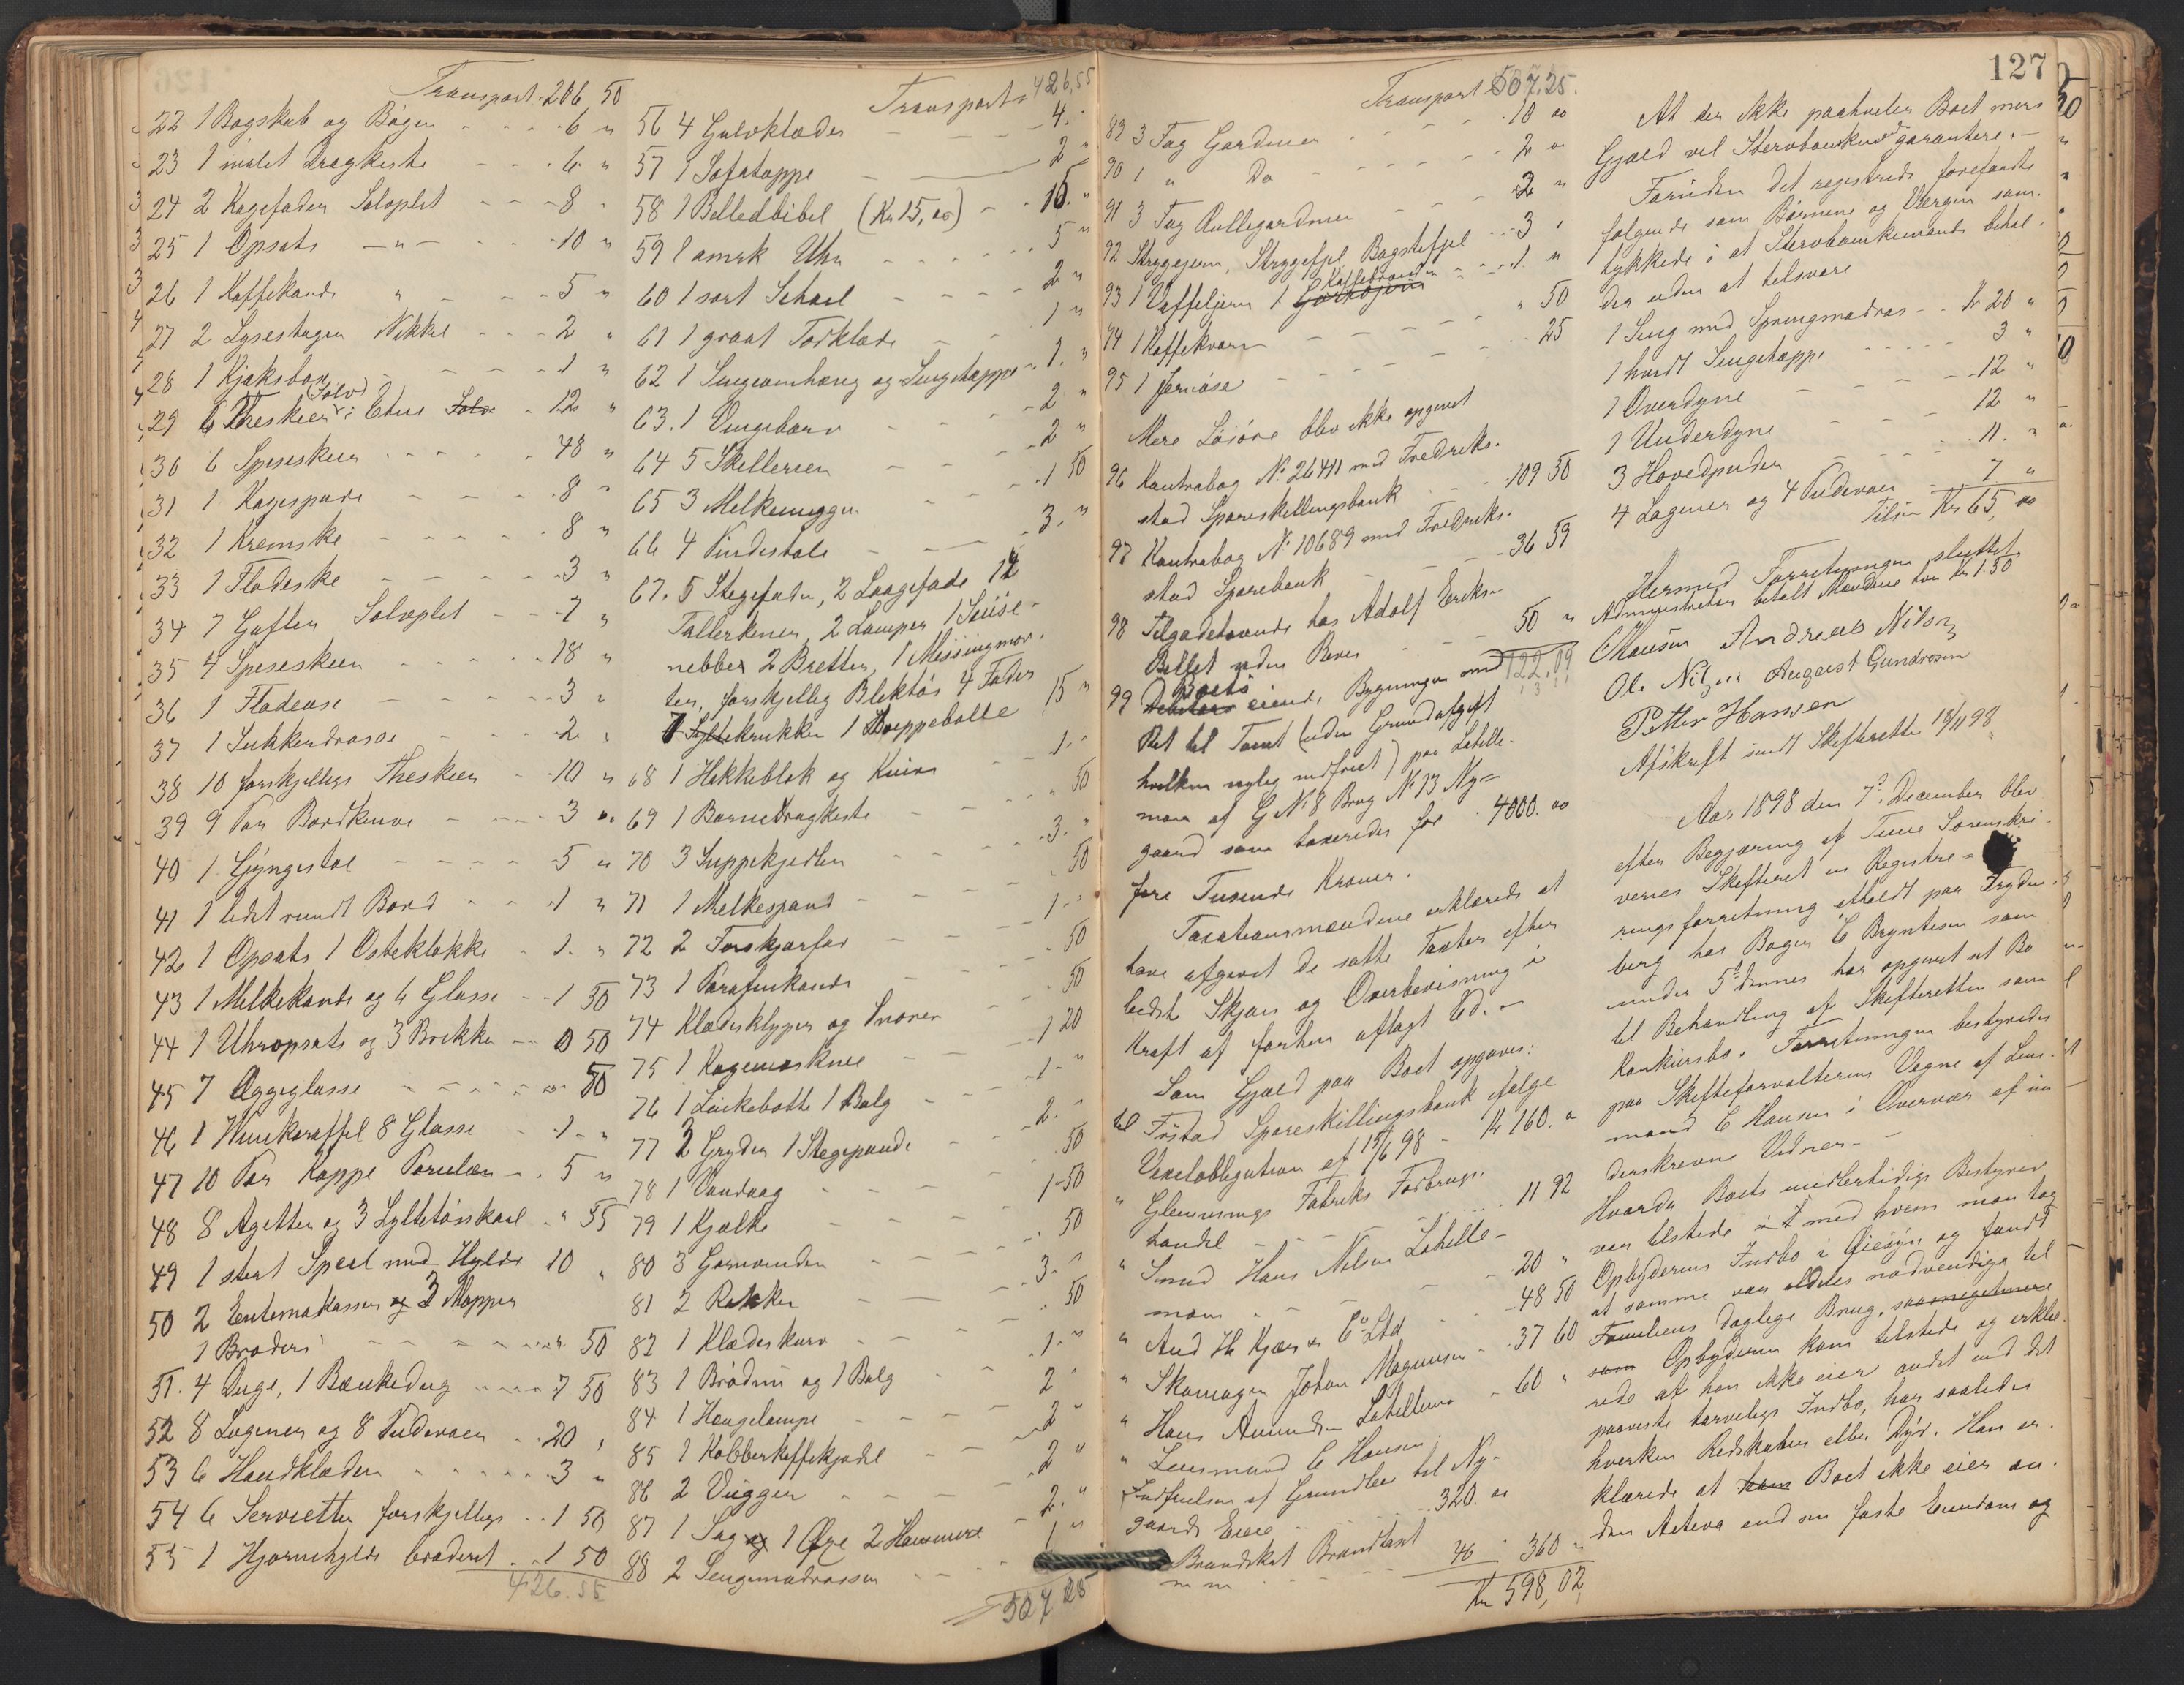 Transport 206 50
22 1 Bogskab og Bøger 6 "
23 1 malet Dragkiste 6 "
24 2 Kagefader Sølvplet 8 "
25 1 Opsats — " — 10 "
26 1 Kaffekande " 5 "
27 2 Lysestager Nikkel 2 "
28 1 Kjæksbox 1 "
29 6 Theskeer i Etui Sølv 12 "
30 6 Spiseskeer 48 "
31 1 Kagespade 8 "
32 1 Kremske 8 "
33 1 Flødeske 3 "
34 7 Gafler Sølvplet 7 "
35 4 Spiseskeer 18 "
36 1 Flødeøse 3 "
37 1 Sukkerdaase 2 "
38 10 forskjellige Theskeer 10 "
39 9 Par Bordknive 3 "
40 1 Gyngestol 5 "
41 1 lidet rundt Bord 1 "
42 1 Opsats 1 Osteklokke 1 "
43 1 Melkekande og 6 Glasse 1 50
44 1 Uhropsats og 3 Brikker 0 50
45 7 Æggeglasse 50
46 1 Vinkaraffel 8 Glasse 1 "
47 10 Par Koppe Porselæn 5 "
48 8 Asjetter og 3 Syltetøisskaal " 55
49 1 stort Speil med Hylde 10 "
50 2 Ewternakasser og 3 Mapper
1 Broderi " 50
51. 4 Duge, 1 Bænkedug 7 50
52 8 Lagener og 8 Pudevaer 20 "
53 6 Haandklæder 3 "
54 6 Servietter forskjellige 1 50
55 1 Hjørnehylde broderet 1 50
426.55
Transport 426,55
56 4 Gulvklæder 4. "
57 1 Sofatæppe 2 "
58 1 Billedbibel (Kr 15,00) 15. "
59 1 amrk Uhr 5 "
60 1 sort Schael 2 "
61 1 graat Tørklæde 1 "
62 1 Sengeomhæng og Sengetæppe 1. "
63. 1 Vugebarv 2 "
64 5 Skillerier 2 "
65 3 Melkemugger 1 50
66 4 Pindestole 3. "
67. 5 Stegefade, 2 Laagefade 12
Tallerkener, 2 Lamper 1 Souse-
nebber 2 Bretter, 1 Messingmor-
ter, forskjellig Bliktøi 4 Fade
7 Syltekrukker 1 Suppebolle 15 "
68 1 Hakkeblok og Kniv 1. "
69 1 Barnedragkiste 50
70 3 Suppekjedler 3. "
71 1 Melkespand 50
72 2 Forskjærfad 1. "
73 1 Parafinkande 50
74 Klædesklyper og Snorer 50
75 1 Kagemaskine 1 20
76 1 Vaskebøtte 1 Balg 1. "
77 2 Gryder 1 Stegepande 2. "
78 1 Vandaag 50
79 1 Kjælke 1 50
80 3 Garnvinder 50
81 2 Rokker 3. "
82 1 Klædeskurv 50
83 1 Brødrin og 1 Balg 1. "
84 1 Hængelampe 2 "
85 1 Kobberkaffekjedel 2 "
86 2 Vugger 2 "
87 1 Sag og 1 Øxe 2 Hammere 2. "
88 2 Sengemadrasser 1 "
507 25
127
Transport 507,25.
89 3 Fag Gardiner 10 00
90 1 " Do 2 00
91 3 Fag Rullegardiner 2 "
92 Strygejern, Strygefjel, Bagstefjel 3 "
93 1 Vaffeljern 1 Kaffebrænder 1 "
94 1 Kaffekværn " 50
95 1 Jernøse 25
Mere Løsøre blev ikke opgivet
96 Kontrabog No 26411 med Fredriks-
stad Spareskillingsbank 109 50
97 Kontrabog No 10689 med Fredriks-
stad Sparebank 36 59
98 Tilgodehavende hos Adolf Eriksen
Beløb uden Bevis 50 "
722.09
99 Boets eiende Bygninger med
Ret til Tomt (uden Grundafgift
hvilken nylig indfriet) paa Labelle-
moen af G No 8 Brug No 13 Ny-
gaard som taxeredes for 4000. 00
fire Tusende Kroner.
Taxationsmændene erklærede at
have afgivet de satte Taxter efter
bedste Skjøn og Overbevisning i
Kraft af forhen aflagt Ed. —
Som Gjæld paa Boet opgaves:
til Fr.stad Spareskillingsbank ifølge
Vexelobligation af 15/6 98 Kr 160. "
" Glemmings Fabriks Forbrugs-
handel 11 92
" Smed Hans Nilsen Labelle-
moen 20 "
" And H. Kjær & Co Ltd 48 50
" Skomager Johan Magnusen 37 60
" Hans Amundsen Labellemo 60 "
" Lensmand C Hansen
Indfrielsen af Grundleie til Ny-
gaards Eiere 320. 00
Brandskat Brandtaxt
m m 40 360 "
Kr 598,02
At der ikke paahviler Boet mere
Gjæld vil Stervboenken garantere. —
Foruden det registrede forefandtes
følgende som Børnene og Værgen sam-
tykkede i at Stervboenkemanden behol-
der uden at tilsvare
1 Seng med Springmadras Kr 20 "
1 hvidt Sengetæppe 3 "
1 Overdyne 12 "
1 Underdyne 12 "
3 Hovedpuder 11. "
4 Lagener og 4 Pudevaer 7 "
Tils. Kr 65,00
Hermed Forretningen sluttet
Administrator betalt Mændene hver Kr 1.50
CHansen Andreas Nilsen
Ole Nilsen August Gundersen
Petter Hansen
Afskrift sendt Skifteretten 18/11 98
Aar 1898 den 7de December blev
efter Begjæring af Tune Sorenskri-
veries Skifteret en Registre-
ringsforretning afholdt paa Frydin-
berg hos Bager C Bryntesen som
under 5te dennes har opgivet sit Bo
til Behandling af Skifteretten som
Konkursbo. Forretningen bestyredes
paa Skifteforvalterens Vegne af Lens-
mand C Hansen i Overvær af un-
derskrevne Vidner. —
Hvorda Boets midlertidige Bestyrer
var tilstede med hvem man tog
Opbyderens Indbo i Øiesyn og fandt
at samme var aldeles nødvendige til
Familiens daglige Brug. saameget mere
som Opbyderen kom tilstede og erklæ-
rede at han ikke eier andet end det
paaviste tarvelige Indbo, har saaledes
hverken Redskaber eller Dyr. Han er-
klærede at han Boet ikke eier an-
den Activa end sin faste Eiendom og